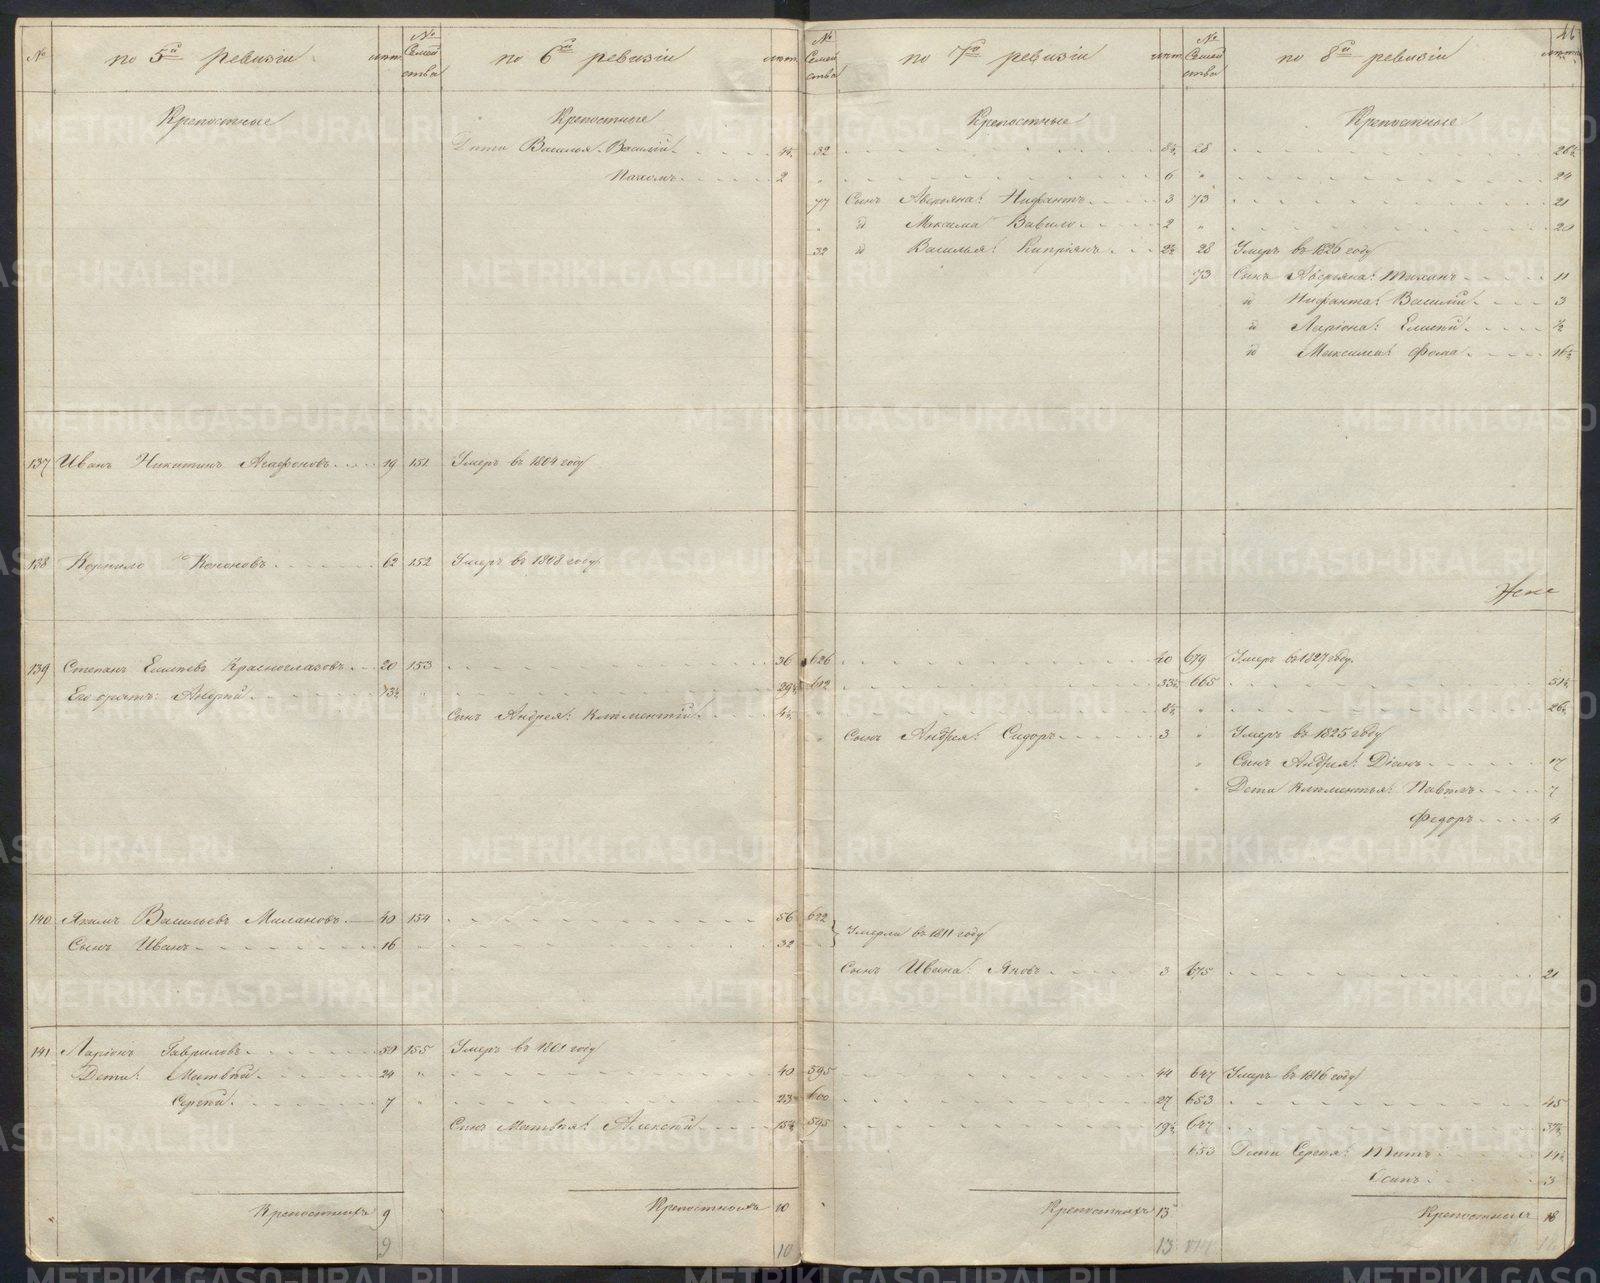 № по 5й ревизіи лѣтъ № Семей ства по 6й ревизіи лѣтъ № Семей ства по 7й ревизіи лѣтъ № Семей ства по 8й ревизіи лѣтъ
Крепостные Крепостные Крепостные Крепостные
Дѣти Василья: Василій 4½ 32 8½ 28 26½
Пахомъ 2 „ 6 „ 24
77 Сынъ Аверьяна: Нифантъ 3 73 21
„ й Максима Вавило 2 „ 20
32 й Василья: Кипріянъ 2½ 28 Умеръ въ 1826 году
73 Сынъ Аверьяна: Тихонъ 11
й Нифанта: Василій 3
й Ларіона: Елисей ½
й Максима: Фома 16½
137 Иванъ Никитинъ Агафоновъ 19 151 Умеръ въ 1804 году
138 Корнило Кононовъ 62 152 Умеръ въ 1808 году
139 Степанъ Елисеевъ Красноглазовъ 20 153 36 626 40 679 Умеръ въ 1827 году
Его братъ: Андрей 13½ „ 29½ 612 33½ 665 51½
Сынъ Андрея: Климентій 4½ 8½ „ 26½
„ Сынъ Андрея: Сидоръ 3 „ Умеръ въ 1825 году
„ Сынъ Андрея: Діанъ 17
„ Дѣти Климентья: Павелъ 7
Федоръ 4
140 Якимъ Васильевъ Милановъ 40 154 56 622
Сынъ Иванъ 16 „ 32 „ Умерли въ 1811 году
Сынъ Ивана: Яковъ 3 675 21
141 Ларіонъ Гавриловъ 50 155 Умеръ въ 1801 году
Дѣти: Матвей 24 „ 40 595 44 647 Умеръ въ 1816 году
Сергей 7 „ 23 600 27 653 45
Сынъ Матвея: Алексей 15½ 595 19½ 647 37½
653 Дѣти Сергея: Титъ 14½
Осипъ 3
Крепостныхъ 9 Крепостныхъ 10 Крепостныхъ 13 Крепостныхъ 18
9 10 13
METRIKI.GASO-URAL.RU